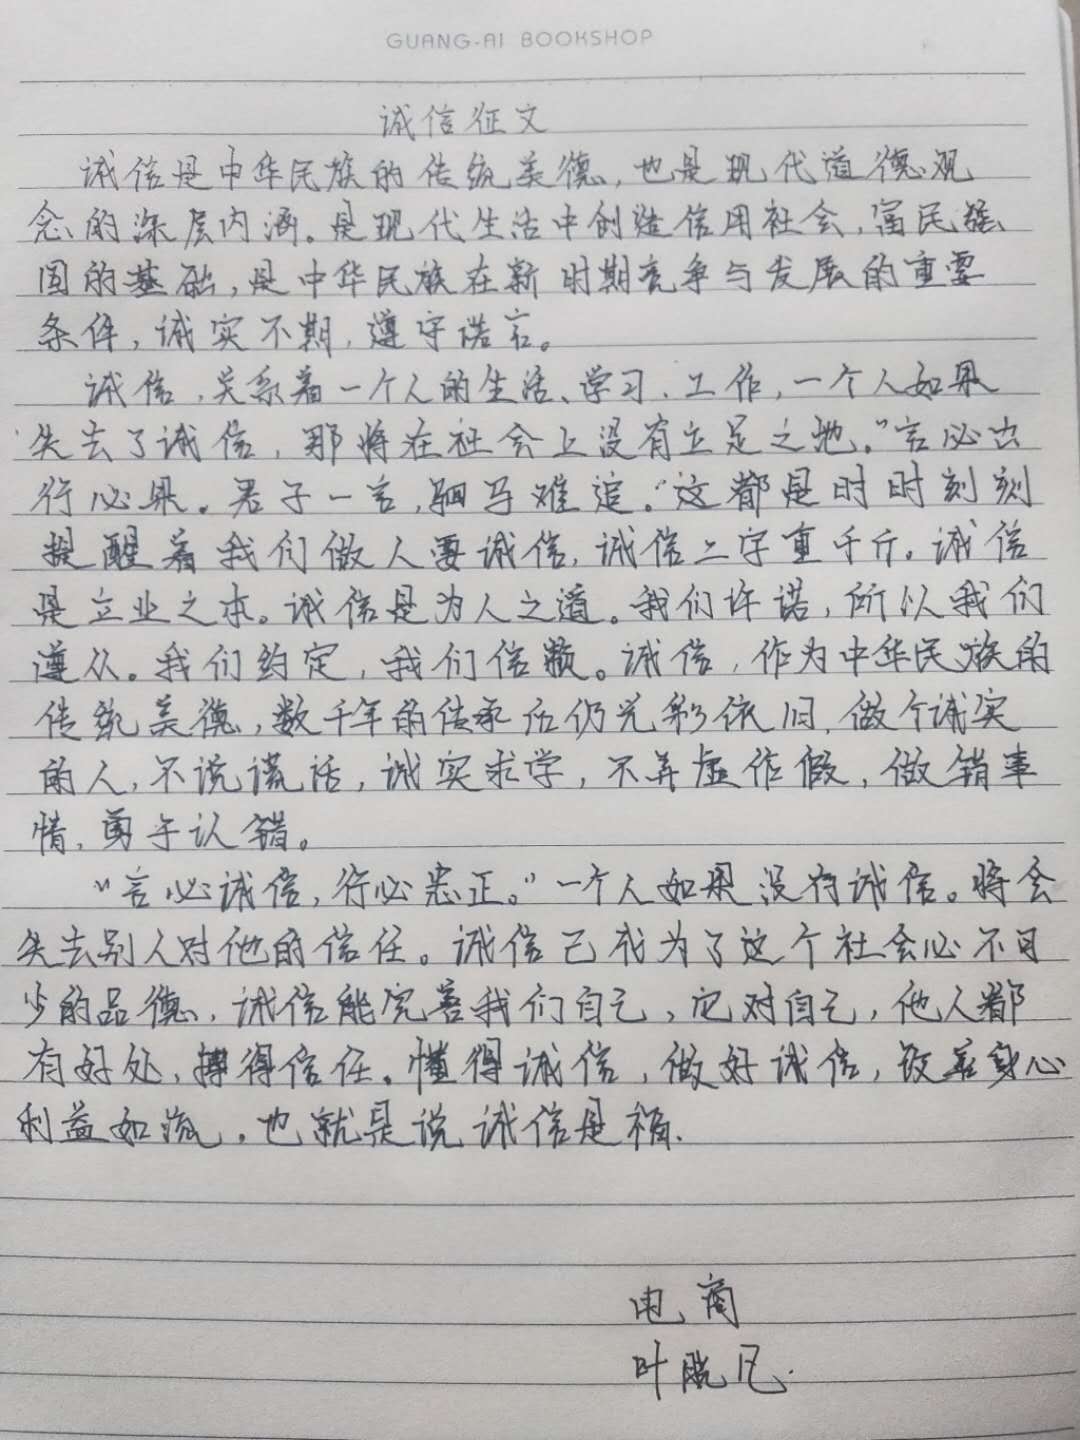 GUANG-AI BOOKSHOP
诚信征文
诚信是中华民族的传统美德,也是现代道德观
念的深层内涵。是现代生活中创造信用社会,富民强
国的基础,是中华民族在新时期竞争与发展的重要
条件,诚实不期,遵守诺言。
诚信,关系着一个人的生活、学习、工作,一个人如果
失去了诚信,那将在社会上没有立足之地。“言必出
行必果。君子一言,驷马难追。”这都是时时刻刻
提醒着我们做人要诚信,诚信二字重千斤。诚信
是立业之本。诚信是为人之道。我们许诺,所以我们
遵从。我们约定,我们信赖。诚信,作为中华民族的
传统美德,数千年的传承后仍光彩依旧,做个诚实
的人,不说谎话,诚实求学,不弄虚作假,做错事
情,勇于认错。
“言必诚信,行必忠正。”一个人如果没有诚信。将会
失去别人对他的信任。诚信已成为了这个社会必不可
少的品德,诚信能完善我们自己,它对自己,他人都
有好处,博得信任。懂得诚信,做好诚信,改善身心
利益如流。也就是说诚信是福.
电商
叶 凡.